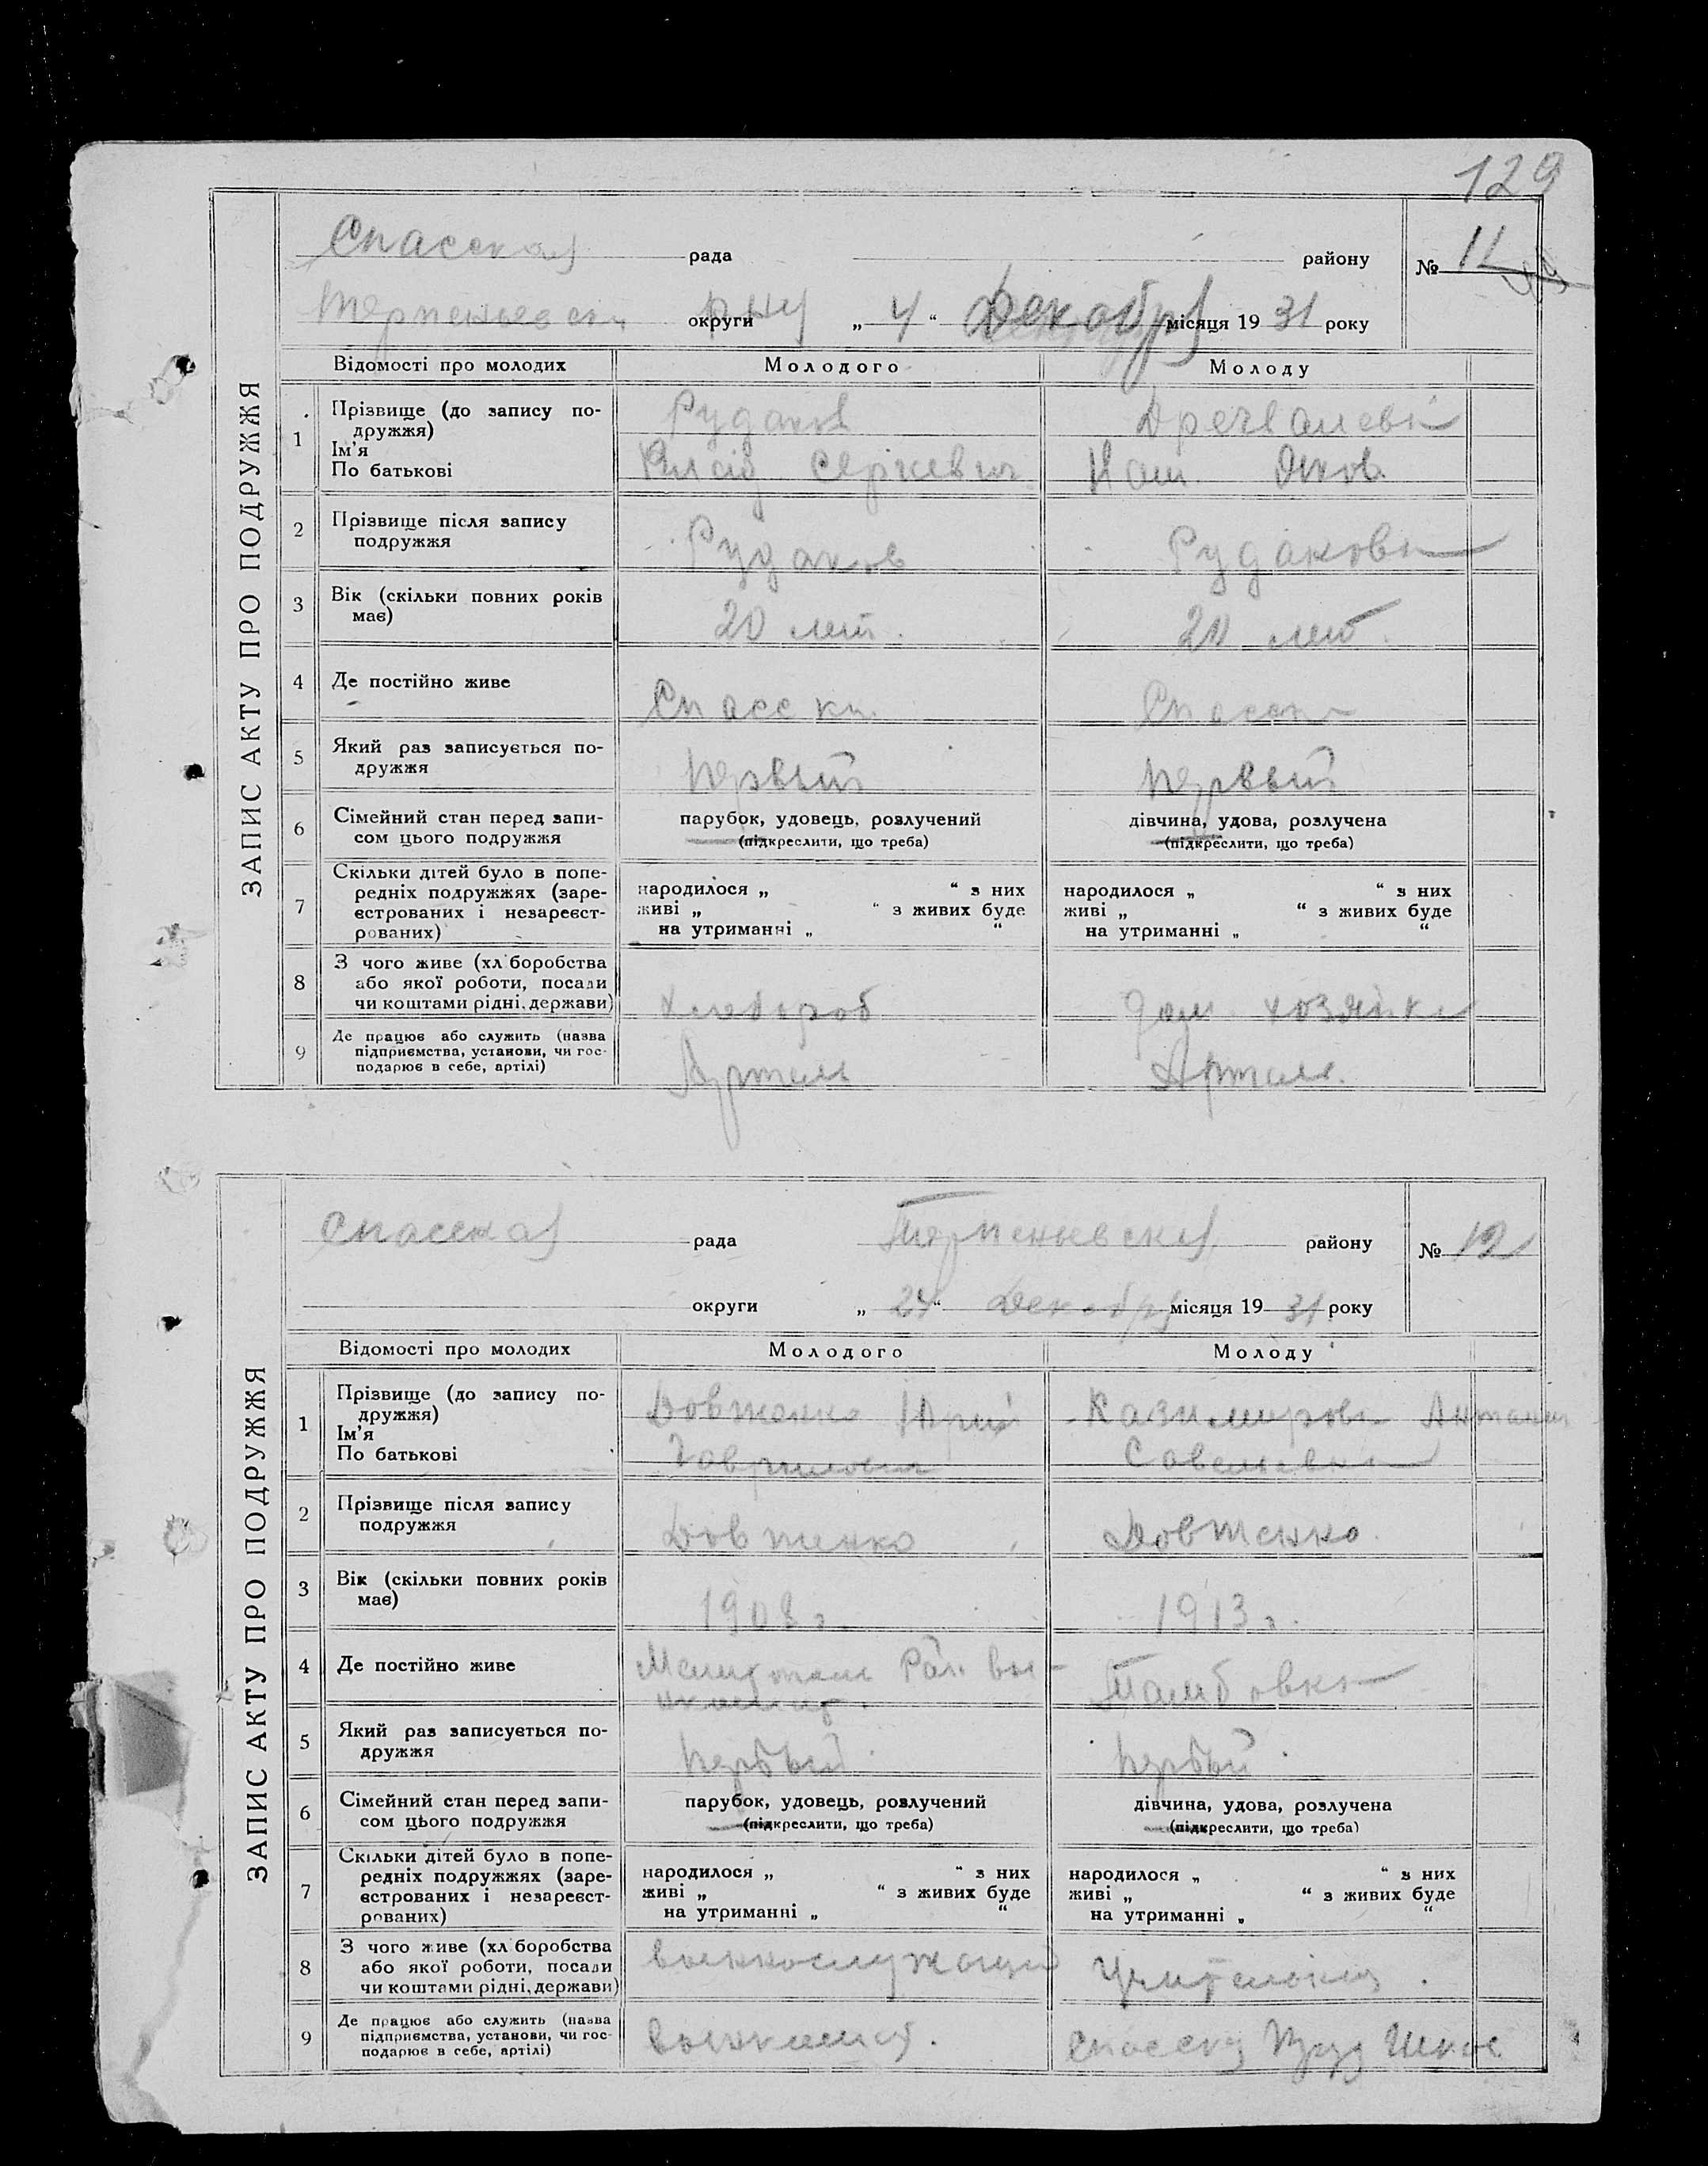 129
ЗАПИС АКТУ ПРО ПОДРУЖЖЯ
Спасская рада району № 11
округи „ 4 “ Декабря місяця 19 31 року
Відомості про молодих Молодого Молоду
1 Прізвище (до запису по-
дружжя)
Ім'я
По батькові
Рудаков
Сергіевич
Яков
2 Прізвище після запису
подружжя
Рудаков Рудакова
3 Вік (скільки повних років
має)
20 лет. 20 лет.
4 Де постійно живе
Спасска Спасска
5 Який раз записується по-
дружжя
Первый Первый
6 Сімейний стан перед запи-
сом цього подружжя
парубок, удовець, розлучений дівчина, удова, розлучена
(підкреслити, що треба) (підкреслити, що треба)
7 Скільки дітей було в попе-
редніх подружжях (заре-
єстрованих і незареєст-
рованих)
народилося „ “ з них народилося „ “ з них
живі „ “ з живих буде живі „ “ з живих буде
на утриманні „ “ на утриманні „ “
8 З чого живе (хл боробства
або якої роботи, посади
чи коштами рідні, держави)
Хлебороб дом. хозяйка
9 Де працює або служить (назва
підприємства, установи, чи гос-
подарює в себе, артілі)
Артель Артель.
ЗАПИС АКТУ ПРО ПОДРУЖЖЯ
Спасская рада району № 12
округи „ 24 “ Декабря місяця 19 31 року
Відомості про молодих Молодого Молоду
1 Прізвище (до запису по-
дружжя)
Ім'я
По батькові
Довженко Юрий Казимирова
Гаврилович Савельевна
2 Прізвище після запису
подружжя
Довженко Довженко
3 Вік (скільки повних років
має)
1908 г. 1913 г.
4 Де постійно живе
Тамбовка
5 Який раз записується по-
дружжя
Первый Первый
6 Сімейний стан перед запи-
сом цього подружжя
парубок, удовець, розлучений дівчина, удова, розлучена
(підкреслити, що треба) (підкреслити, що треба)
7 Скільки дітей було в попе-
редніх подружжях (заре-
єстрованих і незареєст-
рованих)
народилося „ “ з них народилося „ “ з них
живі „ “ з живих буде живі „ “ з живих буде
на утриманні „ “ на утриманні „ “
8 З чого живе (хл боробства
або якої роботи, посади
чи коштами рідні, держави)
военнослужащий Учителька
9 Де працює або служить (назва
підприємства, установи, чи гос-
подарює в себе, артілі)